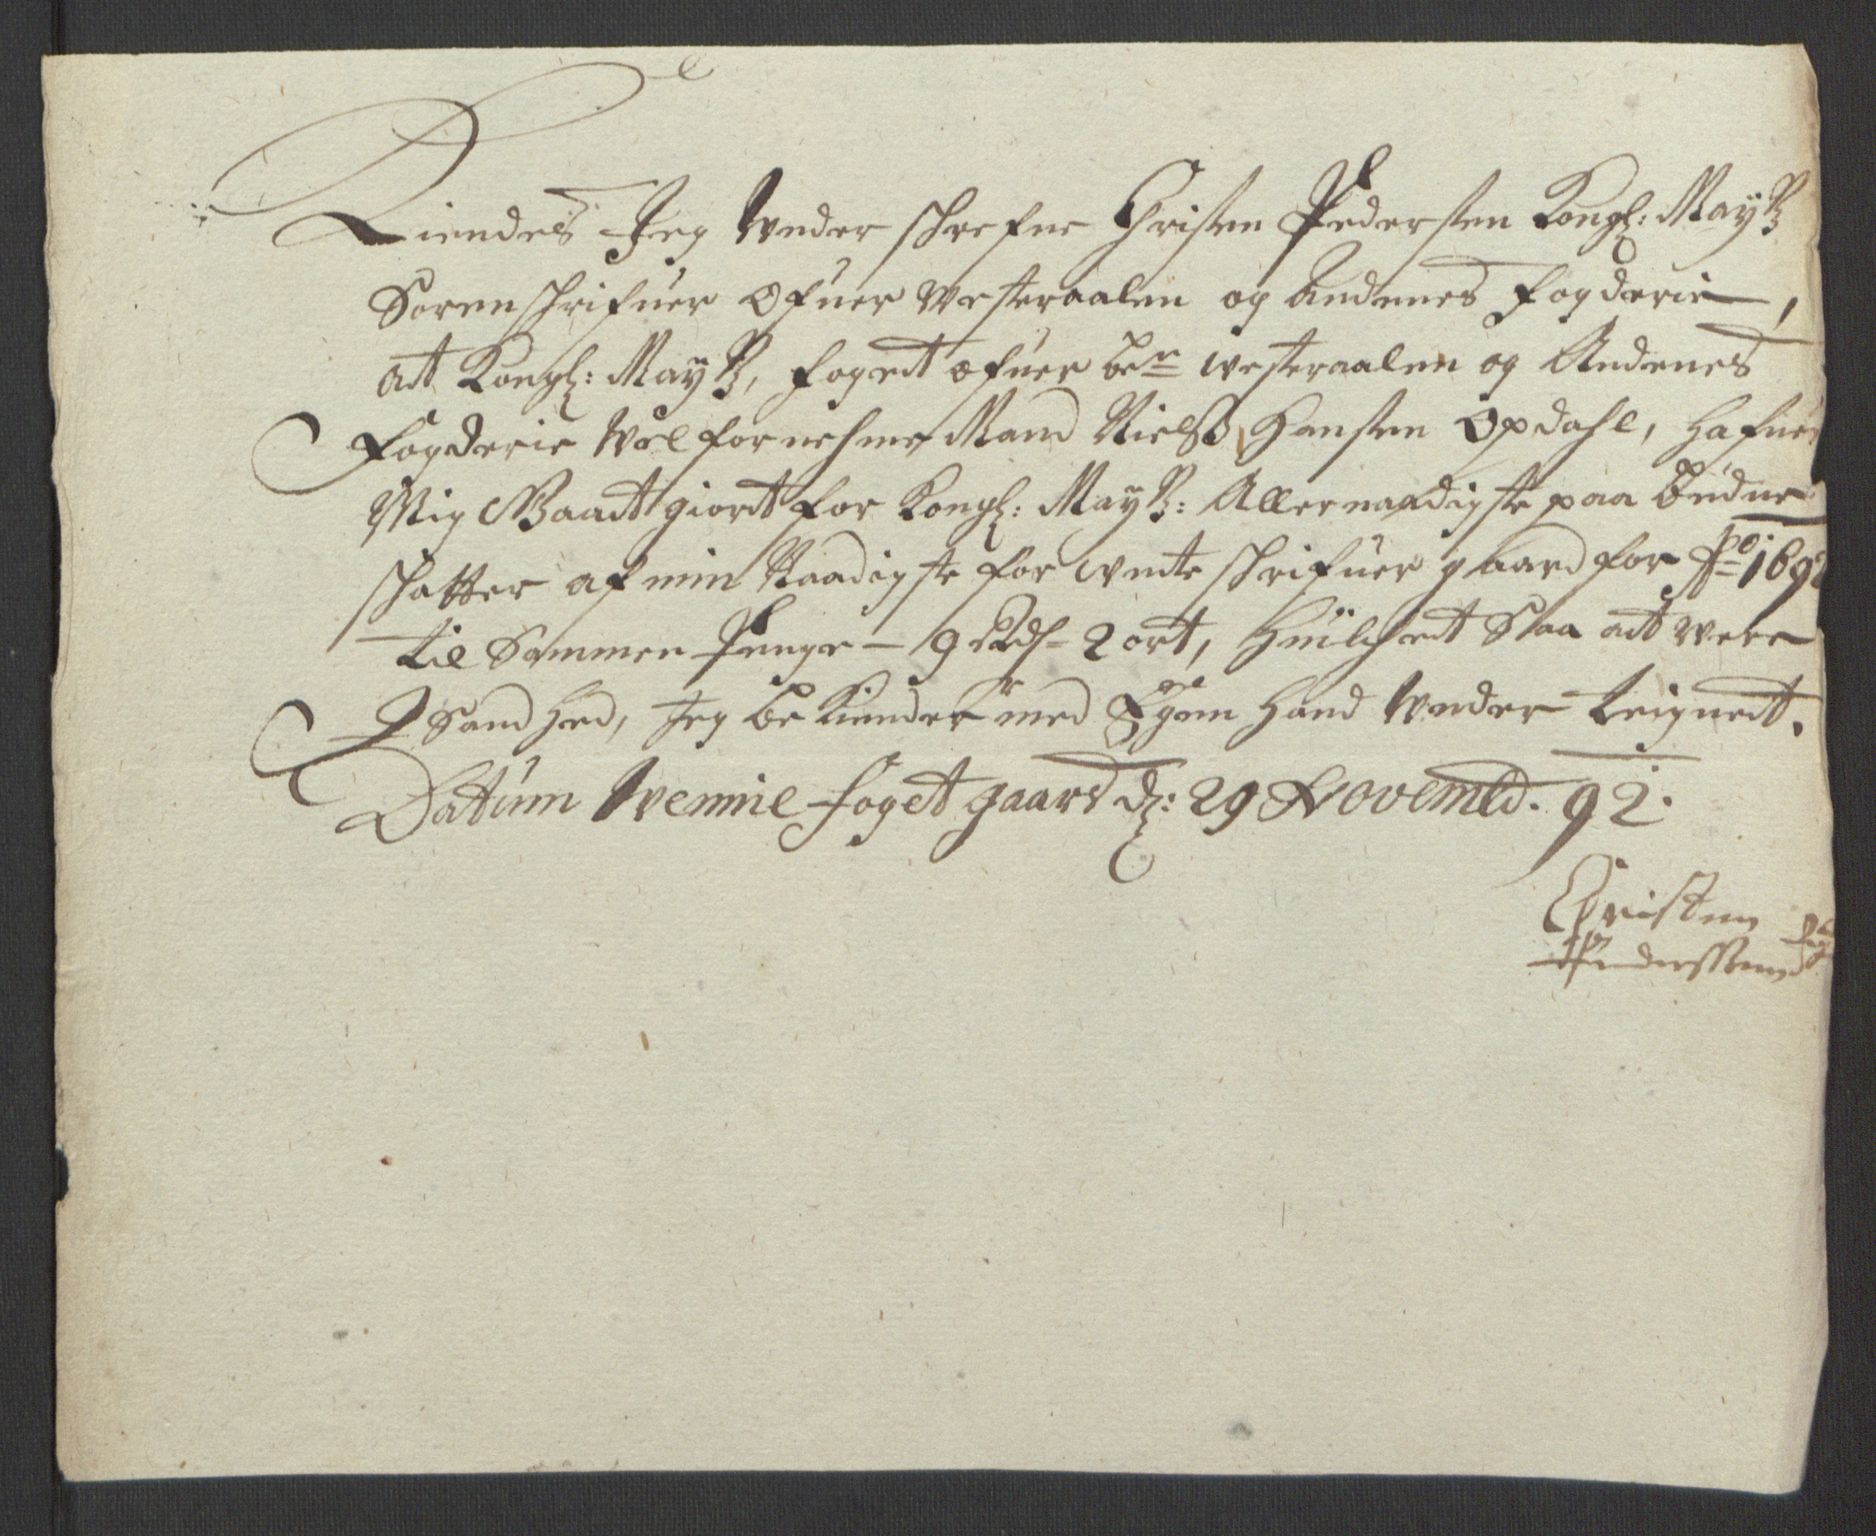 Kiendes Jeg Vnder schrefne Christen Pedersen Kongl: May:tz
Sorenschrifuer Ofuer Westeraalen og Andenes Fogderie,
att Kongl: May:tz, fogett ofuer be:te westeraalen og Andenes
Fogderie Velfornehme Mand Nielss Hansen Opdahl, hafuer
Mig Gaatt giordt for Kongl: May:tz: Allernaadigste paa budne
schatter af min Naadigste for undte schrifuer gaard for Ao: 1692
til Sammen Penge - 9 Rdl - 2 ort, Huilchet Saa att Vere
Sandhed, Jeg be kiender med Egen Hand Vnder teignett.
Datum Vennie foget gaard dl: 29 Novembd. 92.
Christen
Pederssenn